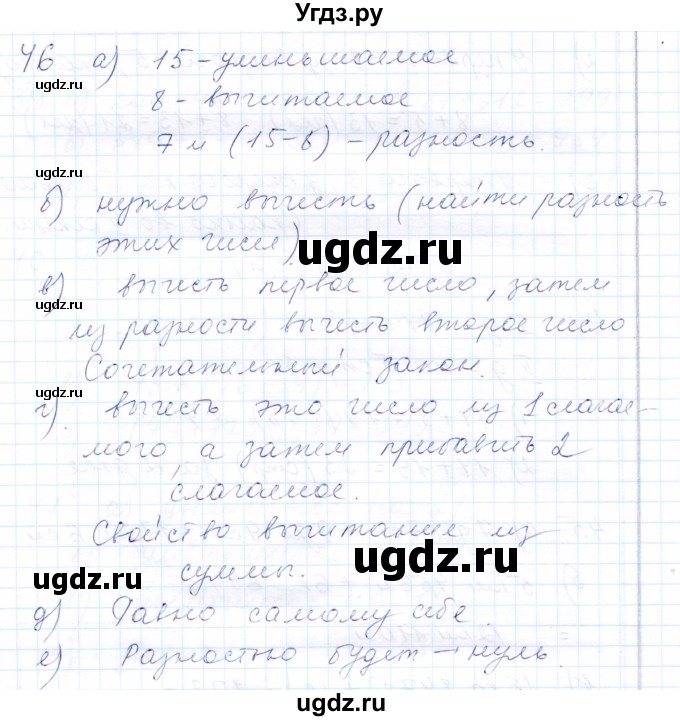 Угдз.ру
46 а) 15 - уменьшаемое
8 - вычитаемое
7 и (15-8) - разность.
б) нужно вычесть (найти разность
этих чисел)
в) вычесть первое число, затем
из разности вычесть второе число
Сочетательный закон.
г) вычесть это число из 1 слагае-
мого, а затем прибавить 2
слагаемое.
Свойство вычитание из
суммы.
д) Равно самому себе.
е) Разностью будет - нуль.
ugdz.ru
ugdz.ru
ugdz.ru
ugdz.ru
ugdz.ru
ugdz.ru
ugdz.ru
ugdz.ru
ugdz.ru
ugdz.ru